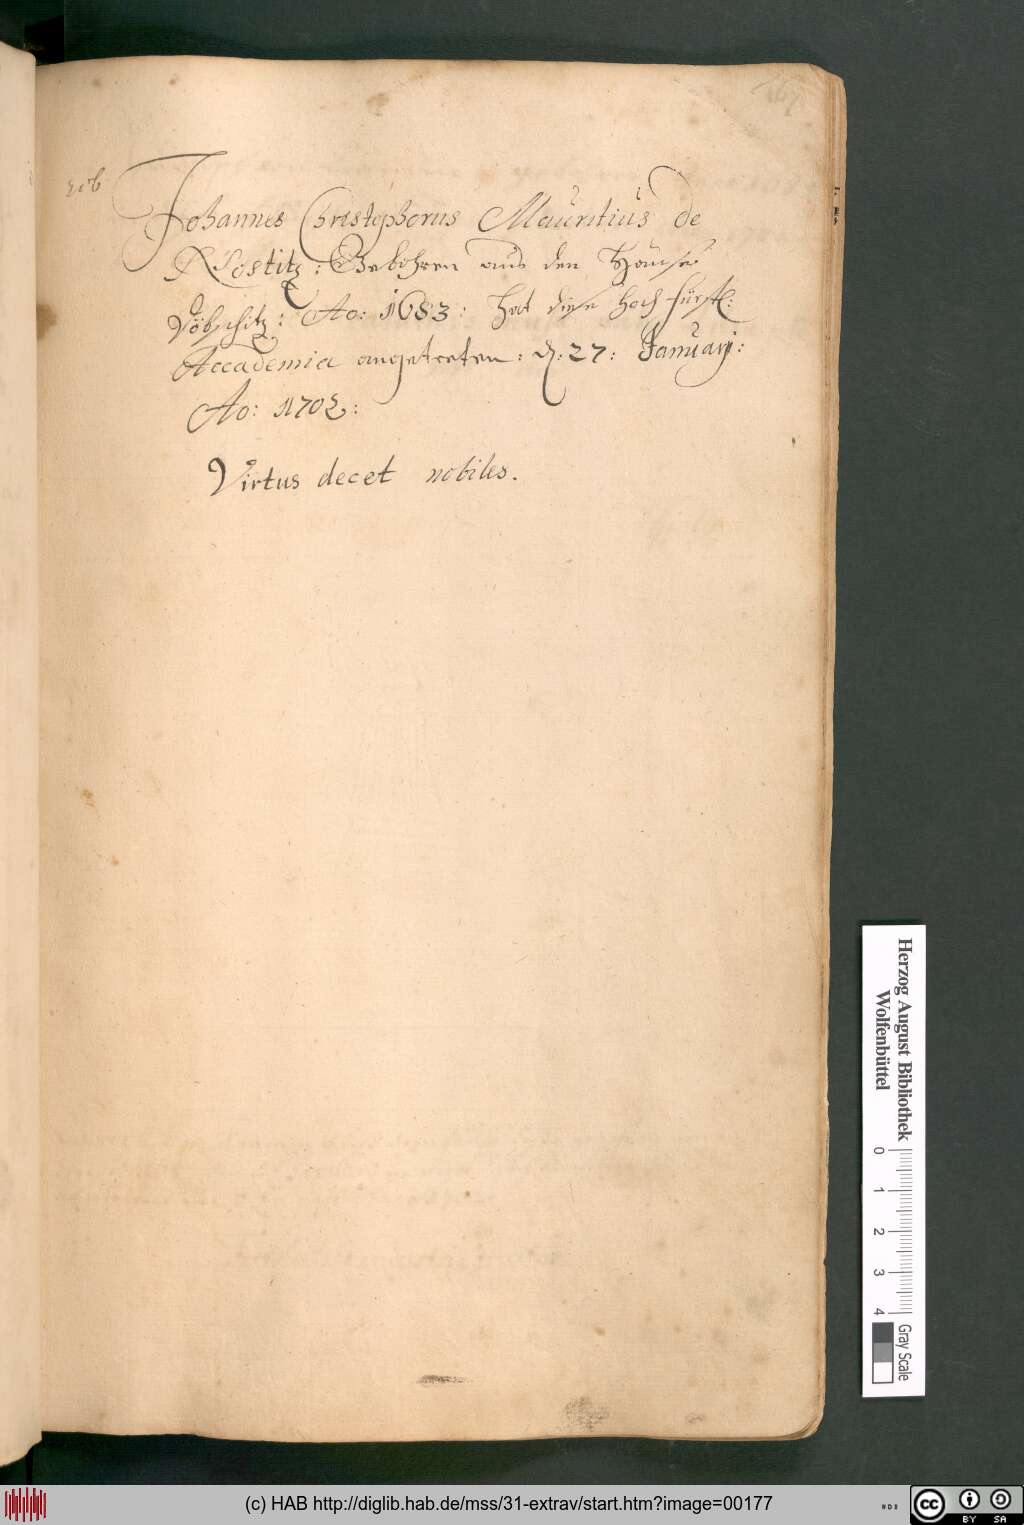 167
Johannes Christophorus Mauritius de
Nostitz: Gebohren aus den Hause
Döbschitz: Ao: 1683: hat diese hoch fürstl:
Accademia angetreten: d: 27: Januarij:
Ao: 1702:
Virtus decet nobiles.
Herzog August Bibliothek
Wolfenbüttel
0 1 2 3 4
Gray Scale
(c) HAB http://diglib.hab.de/mss/31-extrav/start.htm?image=00177
cc BY SA